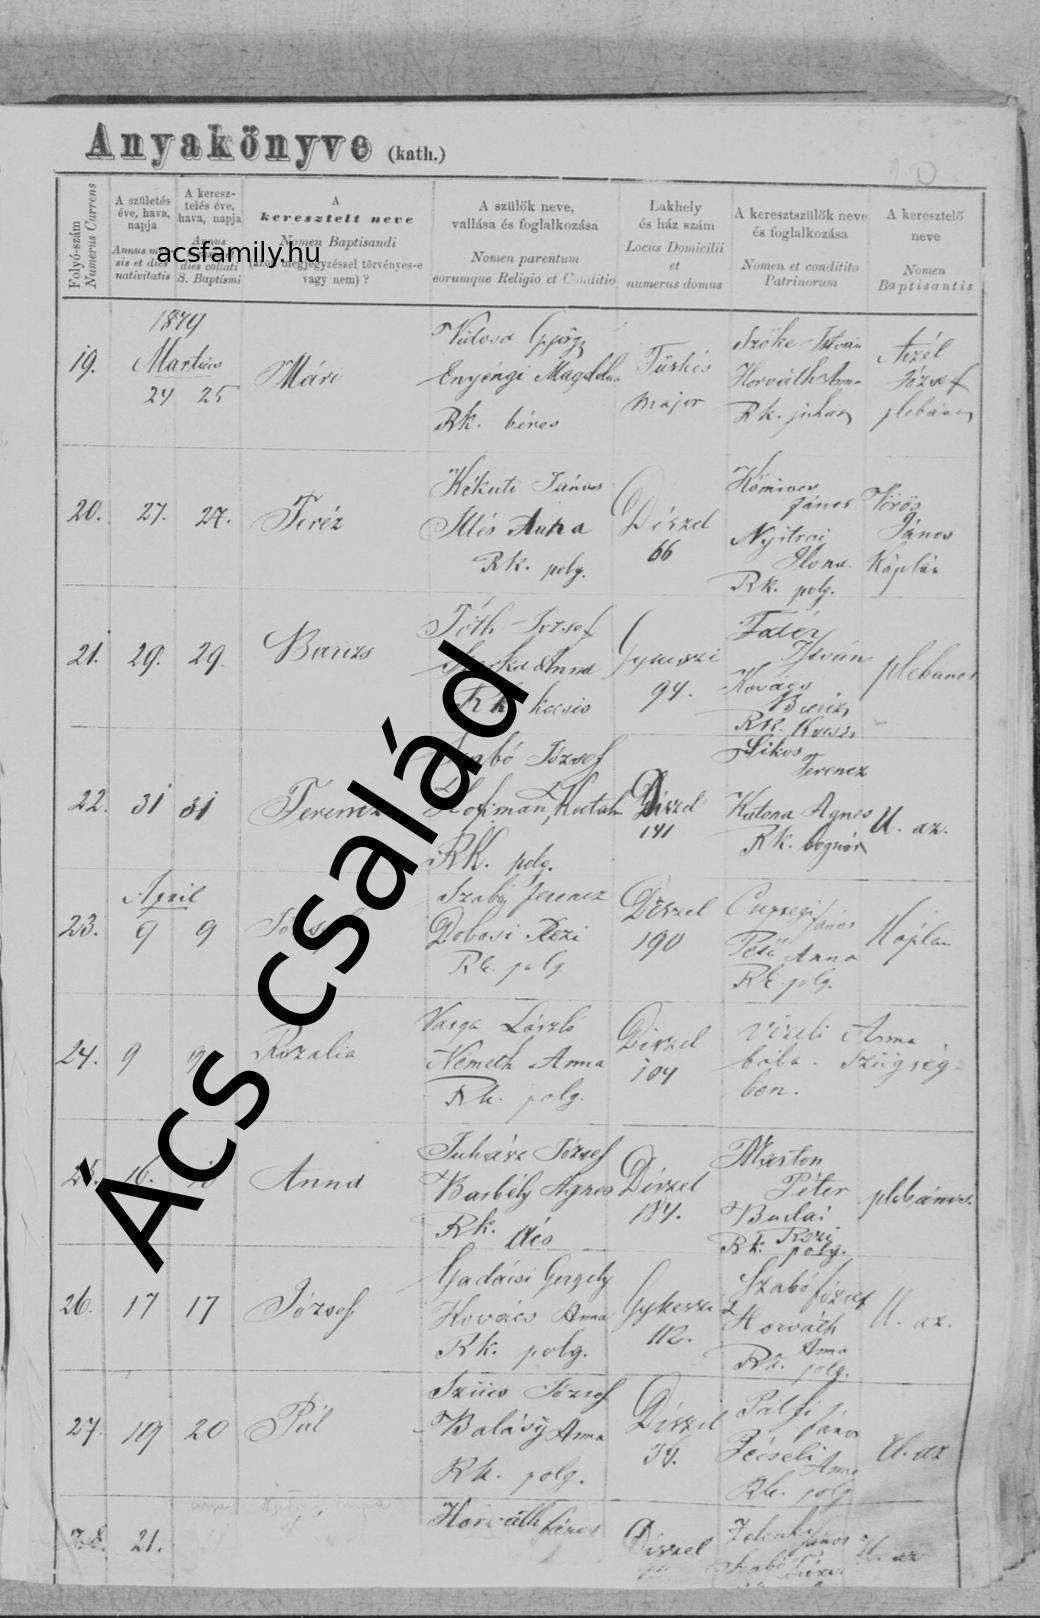 Anyakönyve (kath.)
Folyó-szám
Numerus Currens
A születés
éve, hava,
napja
Annus
sis et dies
nativitatis
A keresz-
telés éve,
hava, napja
Annus
dies collati
S. Baptismi
A
keresztelt neve
Nomen Baptisandi
(azon megjegyzéssel törvényes-e
vagy nem) ?
A szülők neve,
vallása és foglalkozása
Nomen parentum
eorumque Religio et Conditio
Lakhely
és ház szám
Locus Domicilii
et
numerus domus
A keresztszülők neve
és foglalkozása
Nomen et conditito
Patrinorum
A keresztelő
neve
Nomen
Baptisantis
acsfamily.hu
Ács család
19.
1879
Martius
24 25
Mári
György
Enyingi Magdolna
Rk. béres
Tüskés
major
Szőke István
Horváth Anna
Rk. juhász
József
plebános
20.
27. 27.
Teréz
Kékuti János
Illés Anna
Rk. polg.
Diszel
66
Kőmives
János
Nyitrai
Ilona
Rk. polg.
Vörös
János
Káplán
21.
29. 29.
Tóth József
Anna
Rk. kocsis
94.
István
Kovács
Rk. Kocsis
plebanos
22.
31 31
Ferencz
Szabó József
Rk. polg.
Diszel
141
Sikos
Ferencz
Katona Agnes
Rk. bognár
U. az.
23.
April
9 9
József
Szabó Ferencz
Dobosi Rezi
Rk. polg
Diszel
190
János
Pető Anna
Rk. polg.
Káplán
24.
9 9
Rozalia
Varga László
Németh Anna
Rk. polg.
Diszel
104
Anna
bába. szükség-
ben.
25.
16.
Anna
Juhász József
Barbély Agnes
Rk. ács
Diszel
184.
Marton
Péter
Budai
Rozi
Rk. polg.
plebános.
26.
17 17
József
Gadácsi Gergely
Kovács Anna
Rk. polg.
112.
Szabó József
Horváth
Anna
Rk. polg.
U. az.
27.
19 20
Pál
Szücs József
Balásy Anna
Rk. polg.
Diszel
34.
Pálfi
János
Pécseli
Anna
Rk. polg
U. az
28.
21.
Horváth János
Diszel
János
U. az